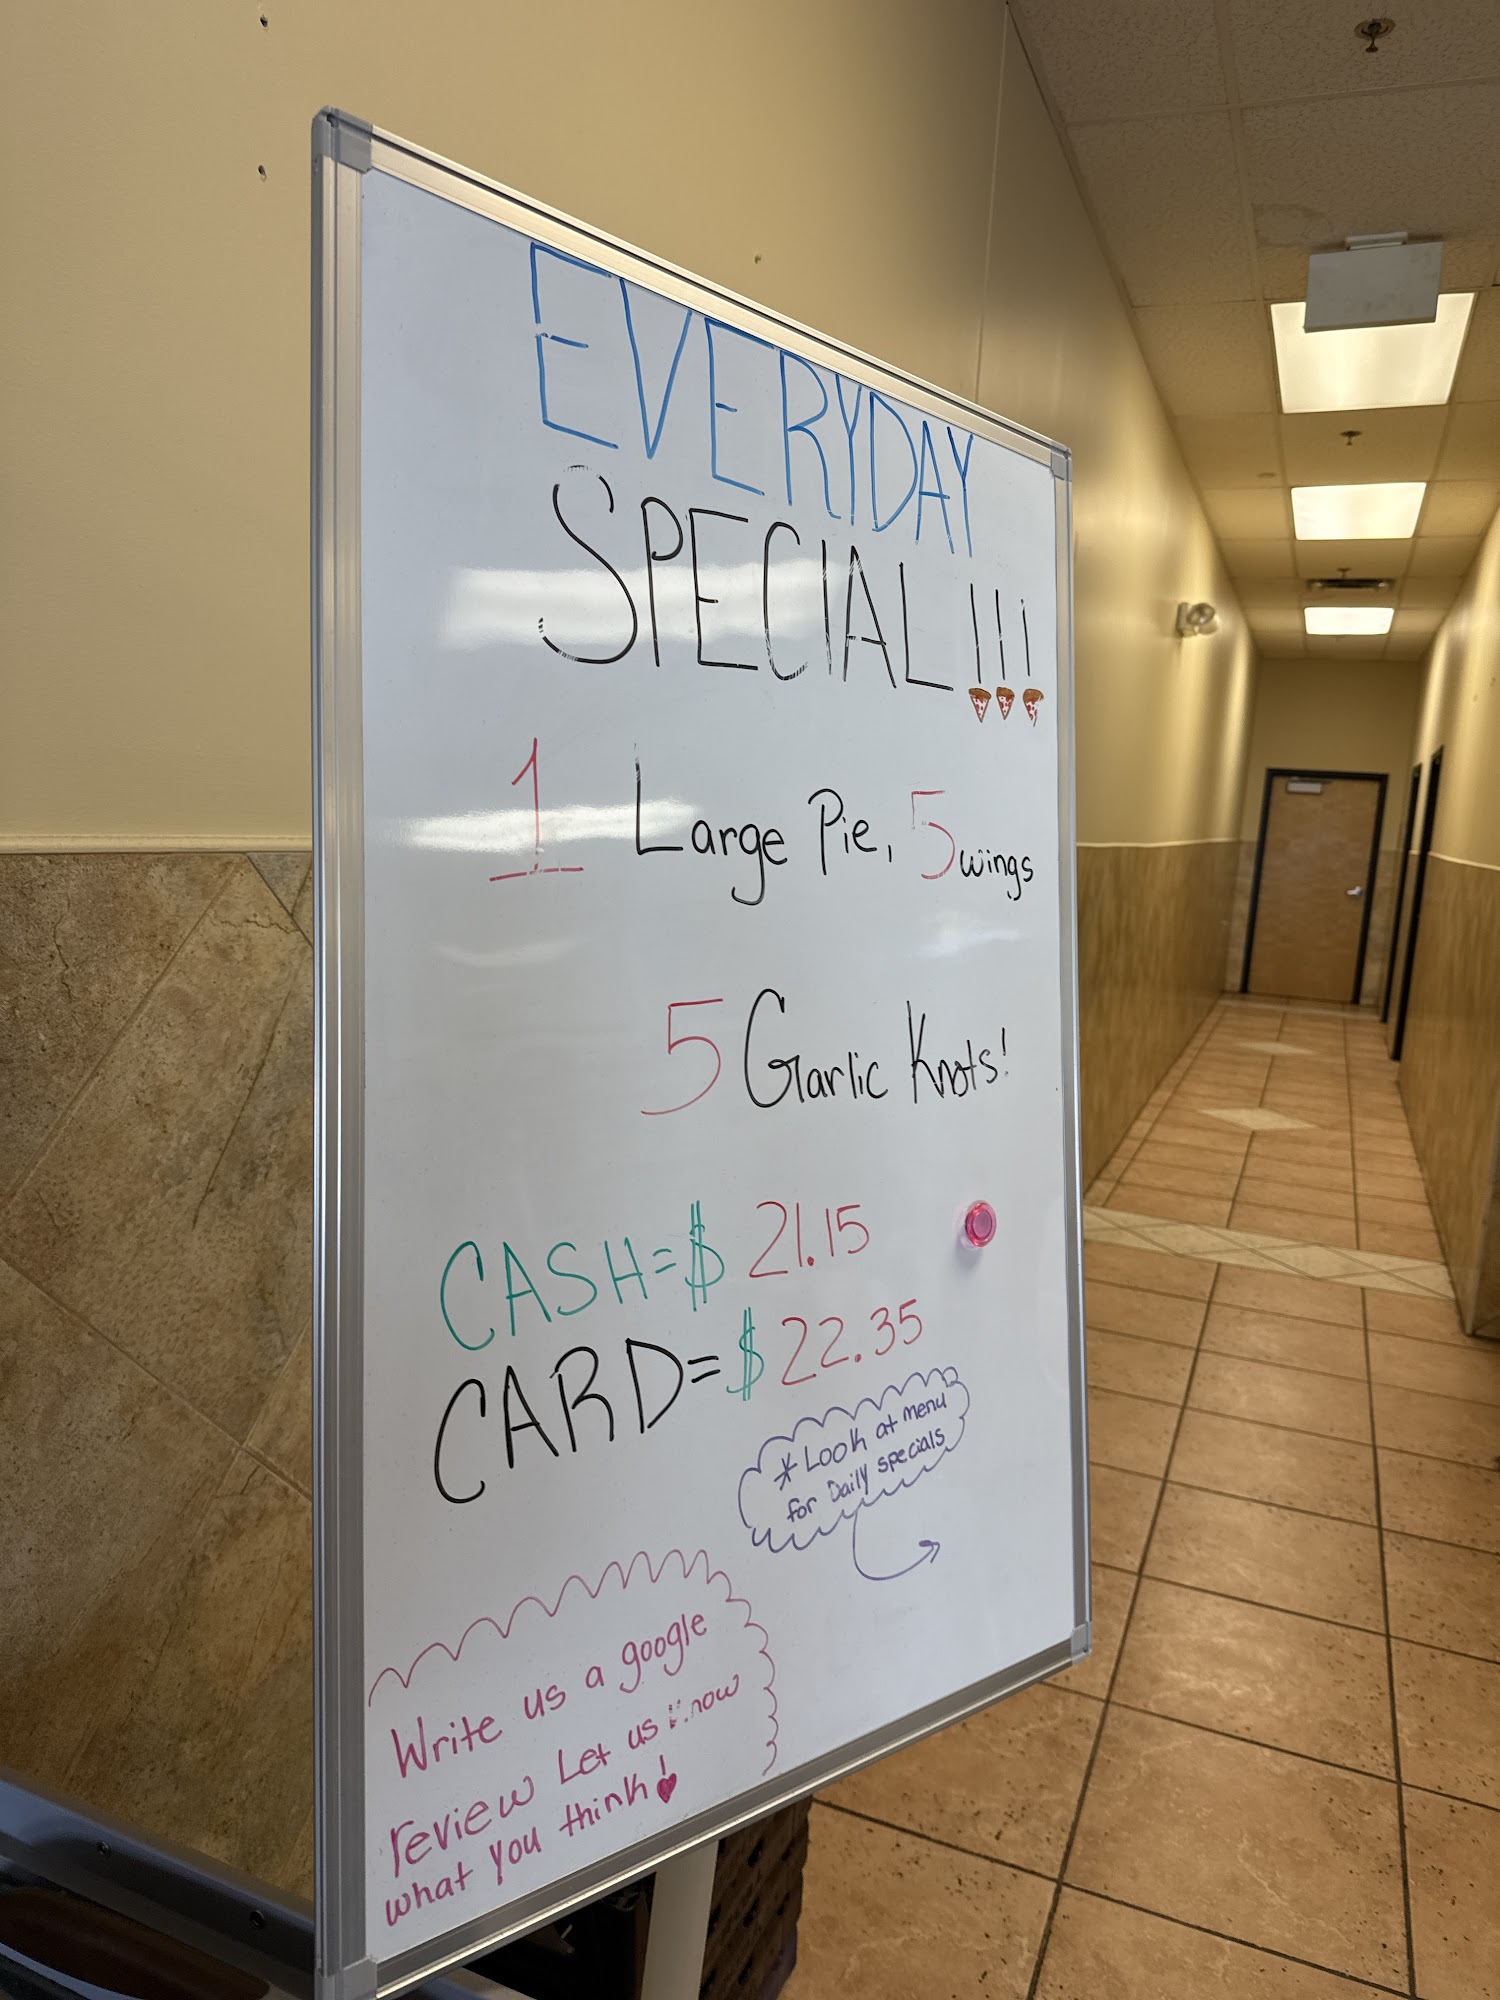 EVERYDAY
SPECIAL!!!
1 Large Pie, 5 wings
5 Garlic Knots!
CASH=$ 21.15
CARD=$ 22.35
* Look at menu
for Daily specials
Write us a google
review Let us know
what you think!